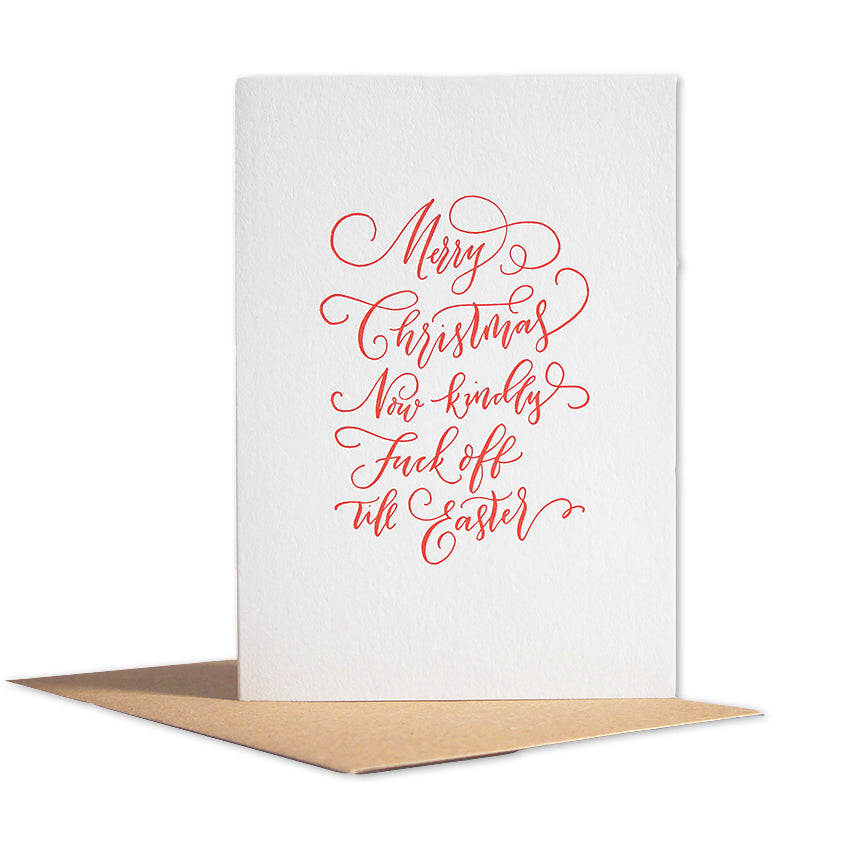 Merry
Christmas
Now kindly
Fuck off
till Easter